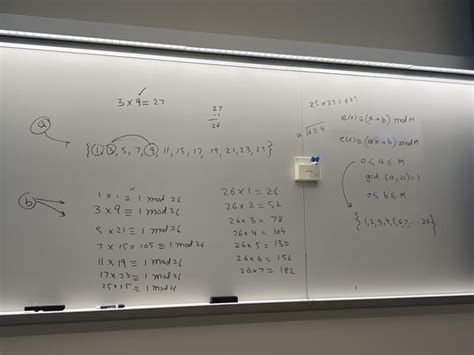 3 × 9 = 27
27
-1
26
a
{1, 3, 5, 7, 9, 11, 15, 17, 19, 21, 23, 25}
b
1 × 1 ≡ 1 mod 26
3 × 9 ≡ 1 mod 26
5 × 21 ≡ 1 mod 26
7 × 15 = 105 ≡ 1 mod 26
11 × 19 ≡ 1 mod 26
17 × 23 ≡ 1 mod 26
25 × 25 ≡ 1 mod
26 × 1 = 26
26 × 2 = 52
26 × 3 = 78
26 × 4 = 104
26 × 5 = 130
26 × 6 = 156
26 × 7 = 182
25 × 25 = 625
e(x) = (x + b) mod M
e(x) = (ax + b) mod M
0 < a ≤ M
gcd (a, 26) = 1
0 ≤ b ≤ M
{1, 2, 3, 4, 5, 6, 7, ... 26}